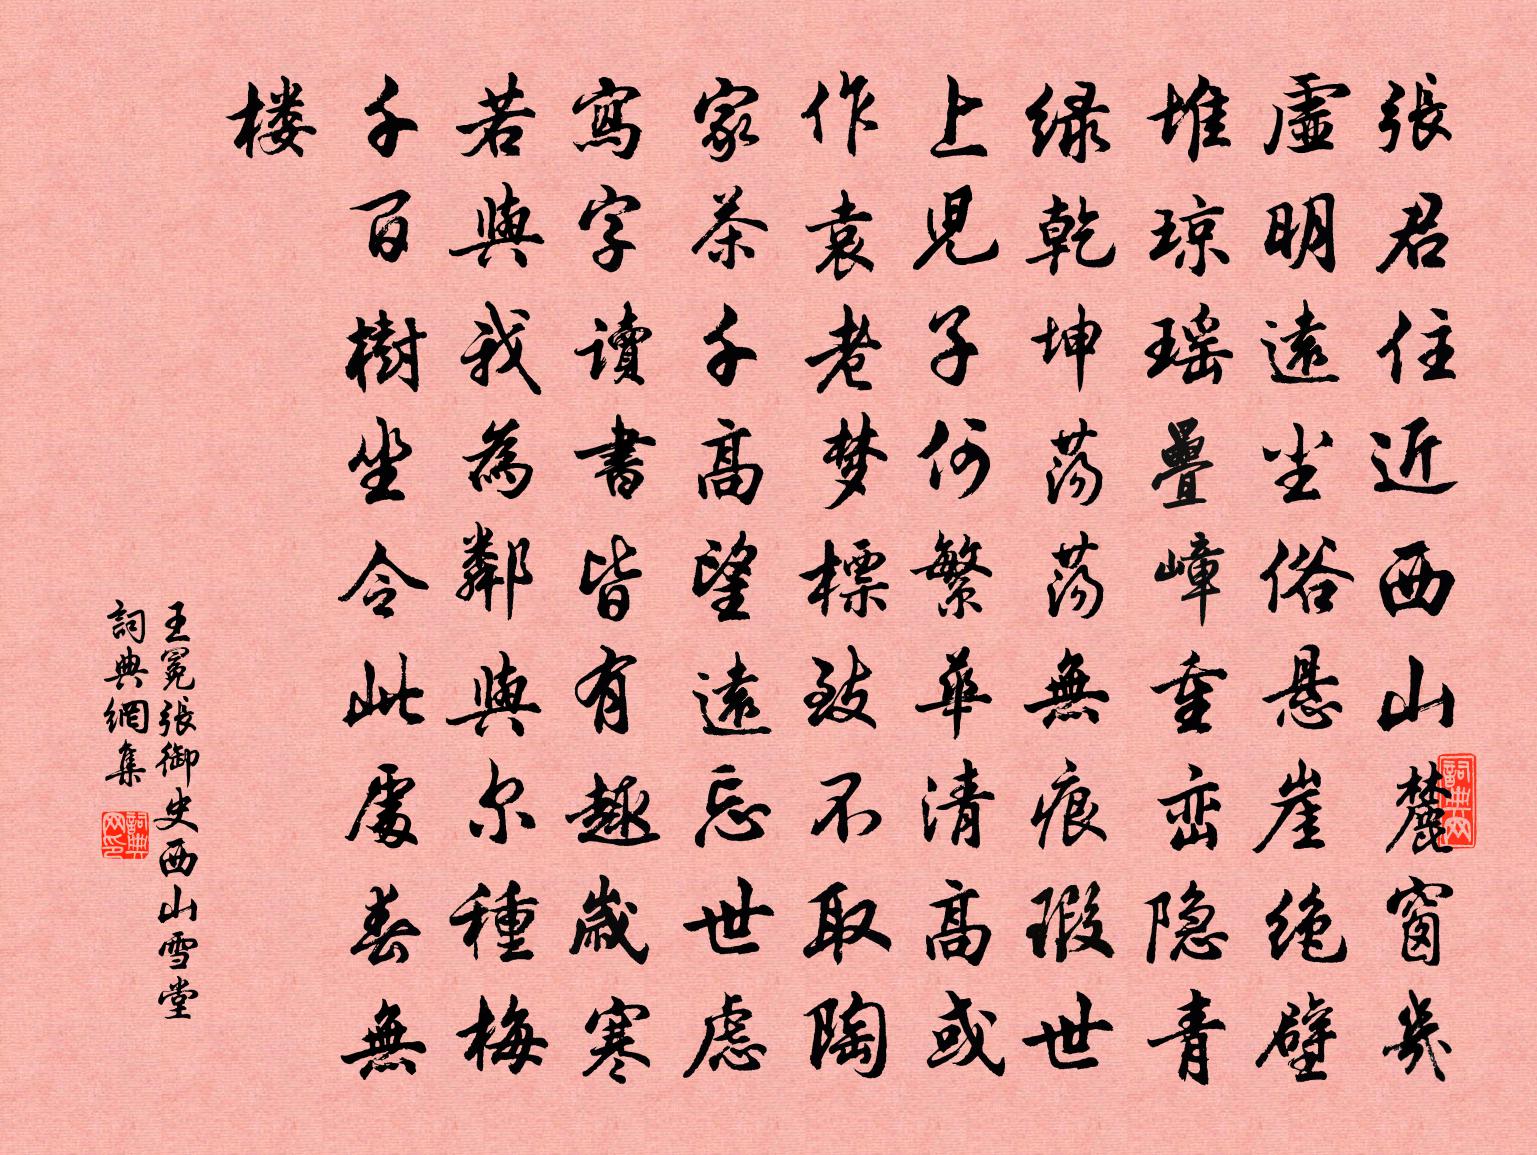 張君住近西山麓窗幾
虛明遠尘俗悬崖绝壁
堆琼瑶疊嶂重峦隐青
绿乾坤荡荡無痕瑕世
上兒子何繁華清高或
作袁老梦標致不取陶
家茶千高望遠忘世虑
寫字讀書皆有趣歲寒
若與我為鄰與尔種梅
千百樹坐令此處春無
楼
王冕張御史西山雪堂
詞典網集
詞典网
詞典网印